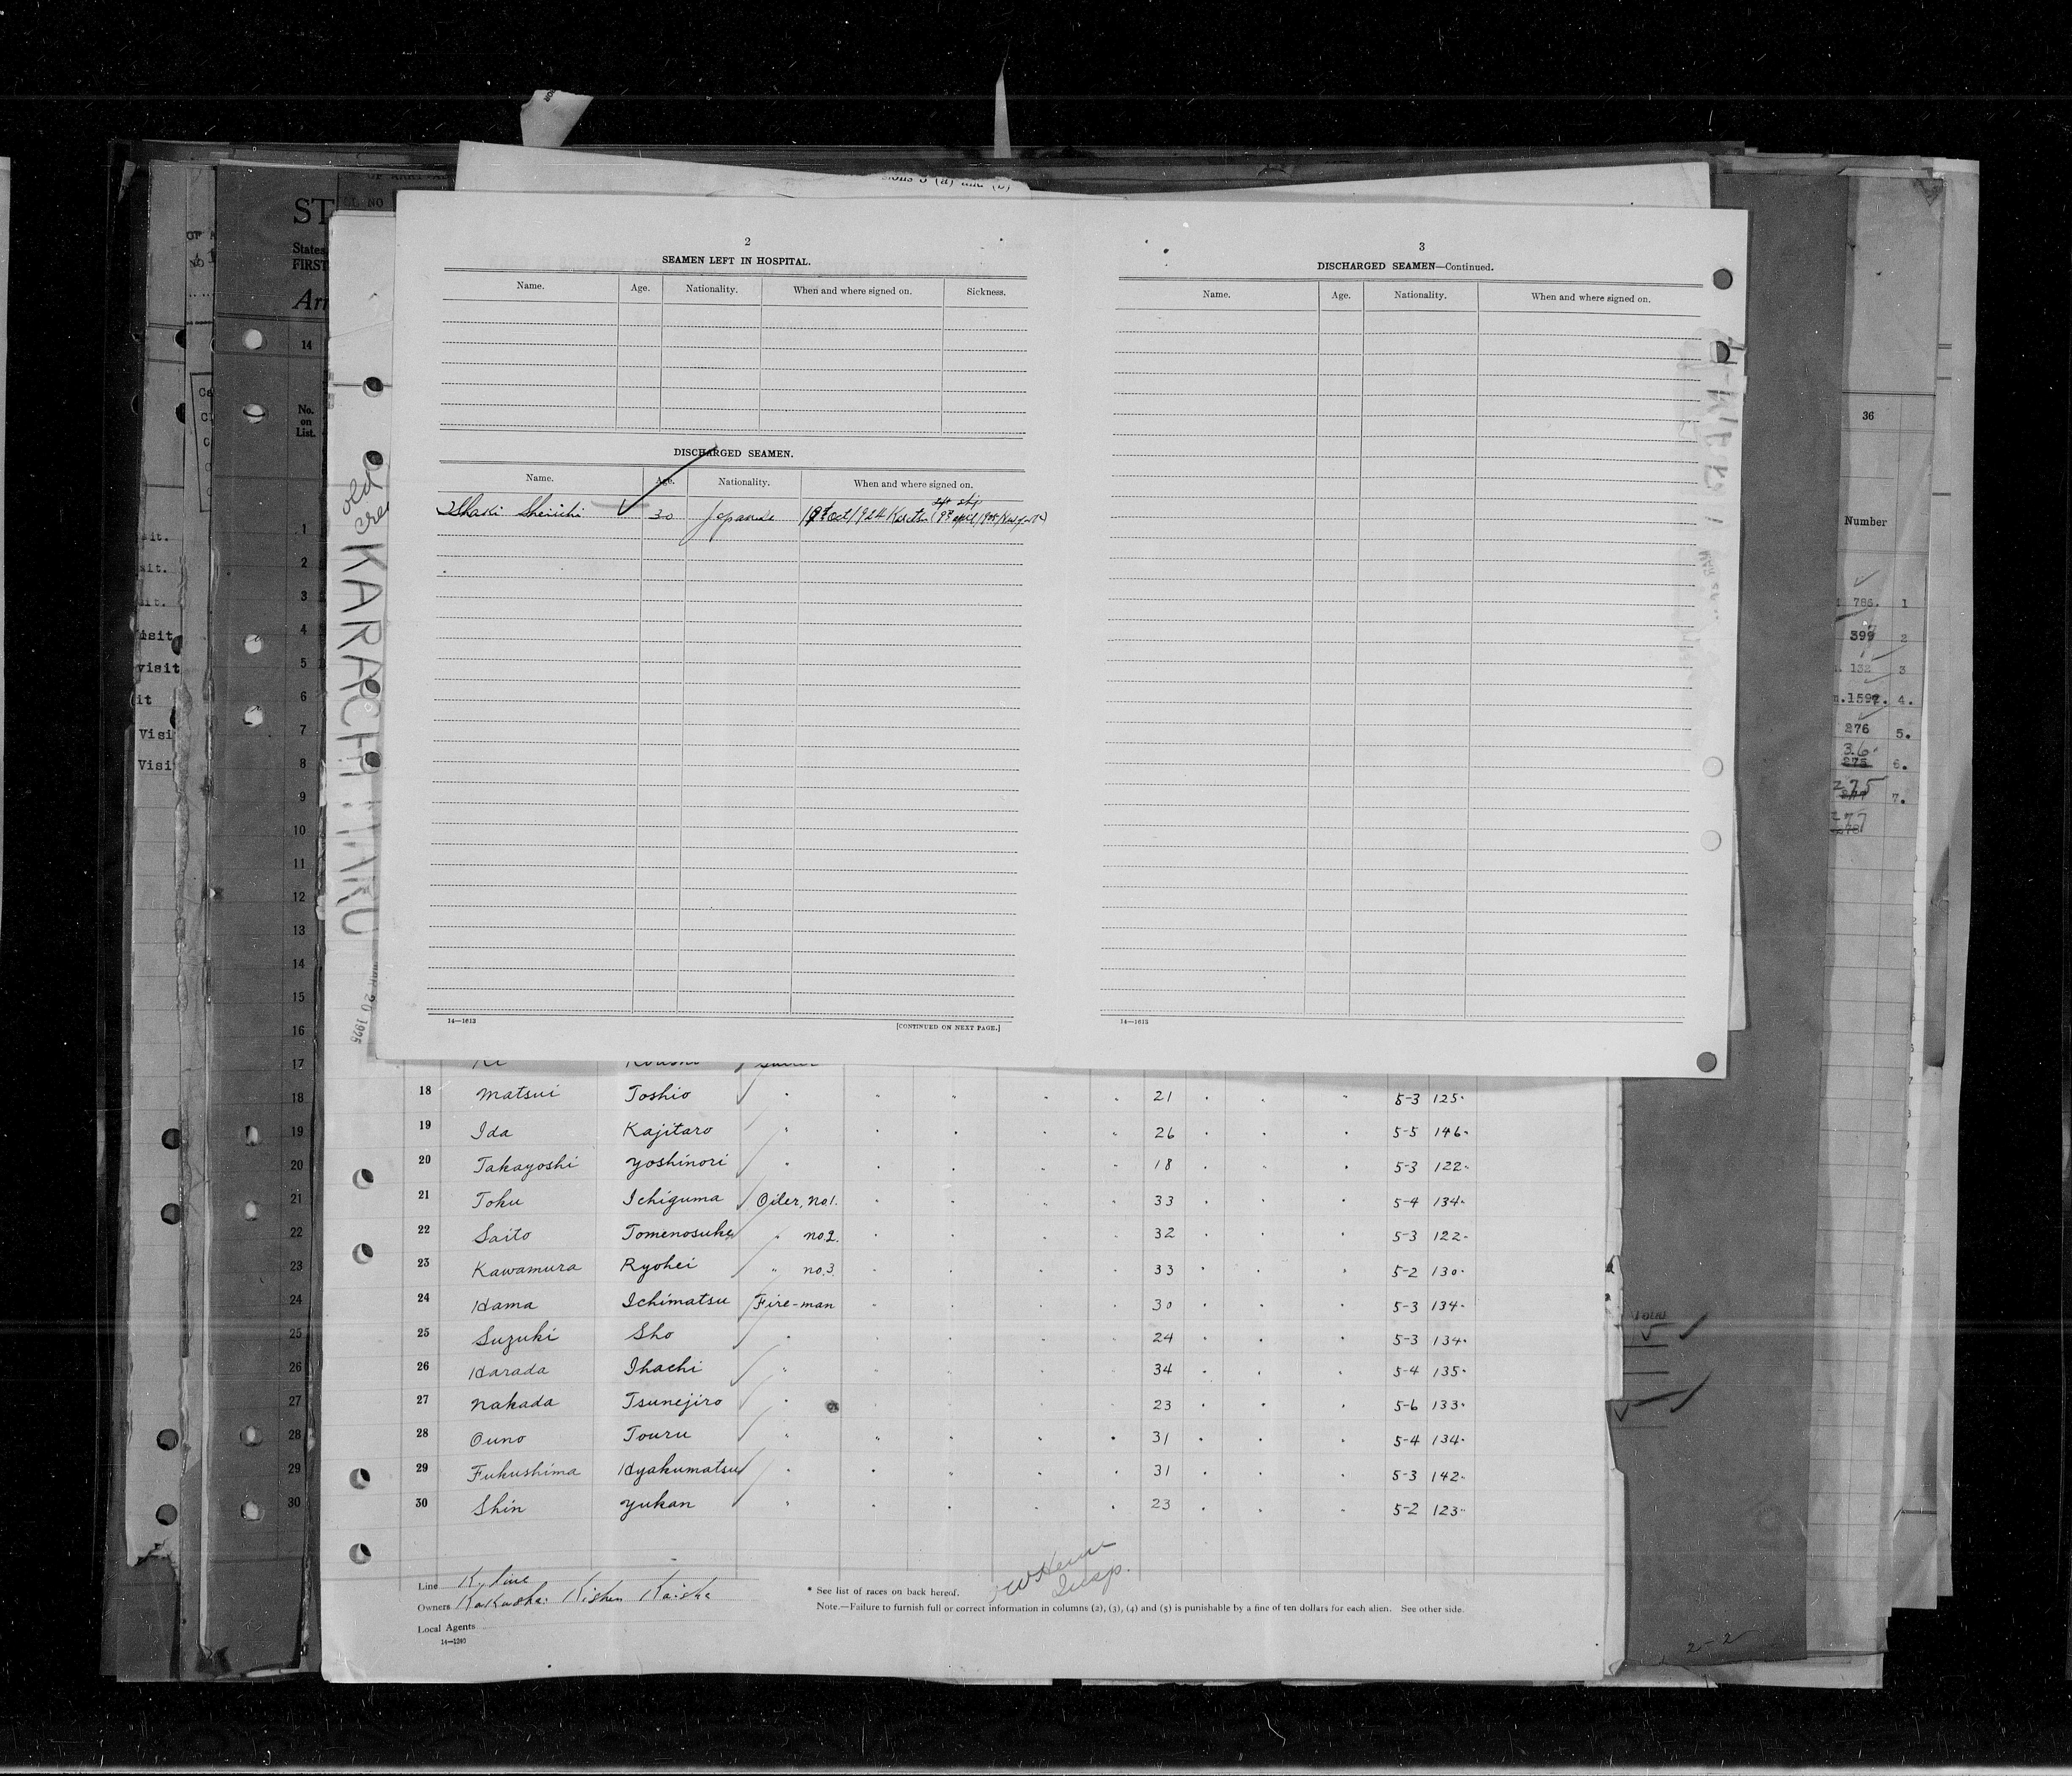 2
SEAMEN LEFT IN HOSPITAL.
Name. Age. Nationality. When and where signed on. Sickness.
DISCHARGED SEAMEN.
Name. Age. Nationality. When and where signed on.
30 Japanese Oct/1924
14—1613
[CONTINUED ON NEXT PAGE.]
3
DISCHARGED SEAMEN—Continued.
Name. Age. Nationality. When and where signed on.
14—1613
ST
States
FIRST
14
No.
on
List.
old
KARACHI MARU
MAR 20 1925
1
2
3
4
5
6
7
8
9
10
11
12
13
14
15
16
17
18
19
20
21
22
23
24
25
26
27
28
29
30
visit
it
Visi
Visi
36
Number
786. 1
399 2
132 3
1592. 4.
276 5.
36. 6.
275 7.
277
18 Matsui Toshio " " " " " 21 " " " 5-3 125"
19 Ida Kajitaro " " " " " 26 " " " 5-5 146"
20 Takayoshi Yoshinori " " " " " 18 " " " 5-3 122"
21 Toku Ichiguma Oiler, No.1. " " " " 33 " " " 5-4 134"
22 Saito Tomenosuke " No.2. " " " " 32 " " " 5-3 122"
23 Kawamura Ryohei " No.3. " " " " 33 " " " 5-2 130"
24 Hama Ichimatsu Fire-man " " " " 30 " " " 5-3 134"
25 Suzuki Sho " " " " " 24 " " " 5-3 134"
26 Harada Ihachi " " " " " 34 " " " 5-4 135"
27 Nakada Tsunejiro " " " " " 23 " " " 5-6 133"
28 Ouno Touru " " " " " 31 " " " 5-4 134"
29 Fukushima Hyakumatsu " " " " " 31 " " " 5-3 142"
30 Shin Yukan " " " " " 23 " " " 5-2 123"
Line K. line
Owners Kokusai Kisen Kaisha
Local Agents
14—1240
* See list of races on back hereof.
Insp.
Note.—Failure to furnish full or correct information in columns (2), (3), (4) and (5) is punishable by a fine of ten dollars for each alien. See other side.
2-2